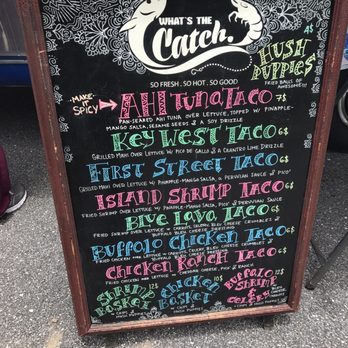 WHAT'S THE
Catch.
4$
HUSH
PUPPIES
FRIED BALLS OF
AWESOMENESS!
SO FRESH . SO HOT . SO GOOD
MAKE IT SPICY
AHI TUNA TACO 7$
PAN-SEARED AHI TUNA OVER LETTUCE, TOPPED W/ PINAPPLE-
MANGO SALSA, SESAME SEEDS & A SOY DRIZZLE
KEY WEST TACO 6$
GRILLED MAHI OVER LETTUCE W/ PICO DE GALLO & A CILANTRO LIME DRIZZLE
FIRST STREET TACO 6$
GRILLED MAHI OVER LETTUCE W/ PINAPPLE-MANGO SALSA, A PERUVIAN SAUCE & PICO!
ISLAND SHRIMP TACO 6$
FRIED SHRIMP OVER LETTUCE W/ PINAPPLE-MANGO SALSA, PICO & PERUVIAN SAUCE
BLUE LAVA TACO 6$
FRIED SHRIMP OVER LETTUCE W/ CARROTS, CELERY, BLEU CHEESE CRUMBLES &
BUFFALO BLEU CHEESE
BUFFALO CHICKEN TACO 6$
FRIED CHICKEN OVER LETTUCE W/ CARROTS, CELERY, BLEU CHEESE CRUMBLES &
CHICKEN RANCH TACO 6$
FRIED CHICKEN OVER LETTUCE W/ CHEDDAR CHEESE, PICO & RANCH
SHRIMP BASKET 12$
CHICKEN BASKET 10$
BUFFALO SHRIMP & CELERY 12$